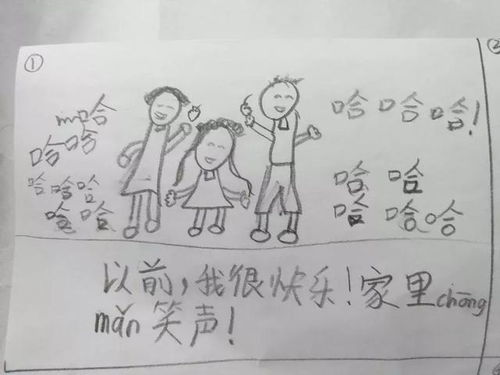 ①
②
哈
哈哈
哈哈哈
哈哈
哈哈哈!
哈哈
哈哈哈
以前，我很快乐！家里chōng
mǎn笑声！